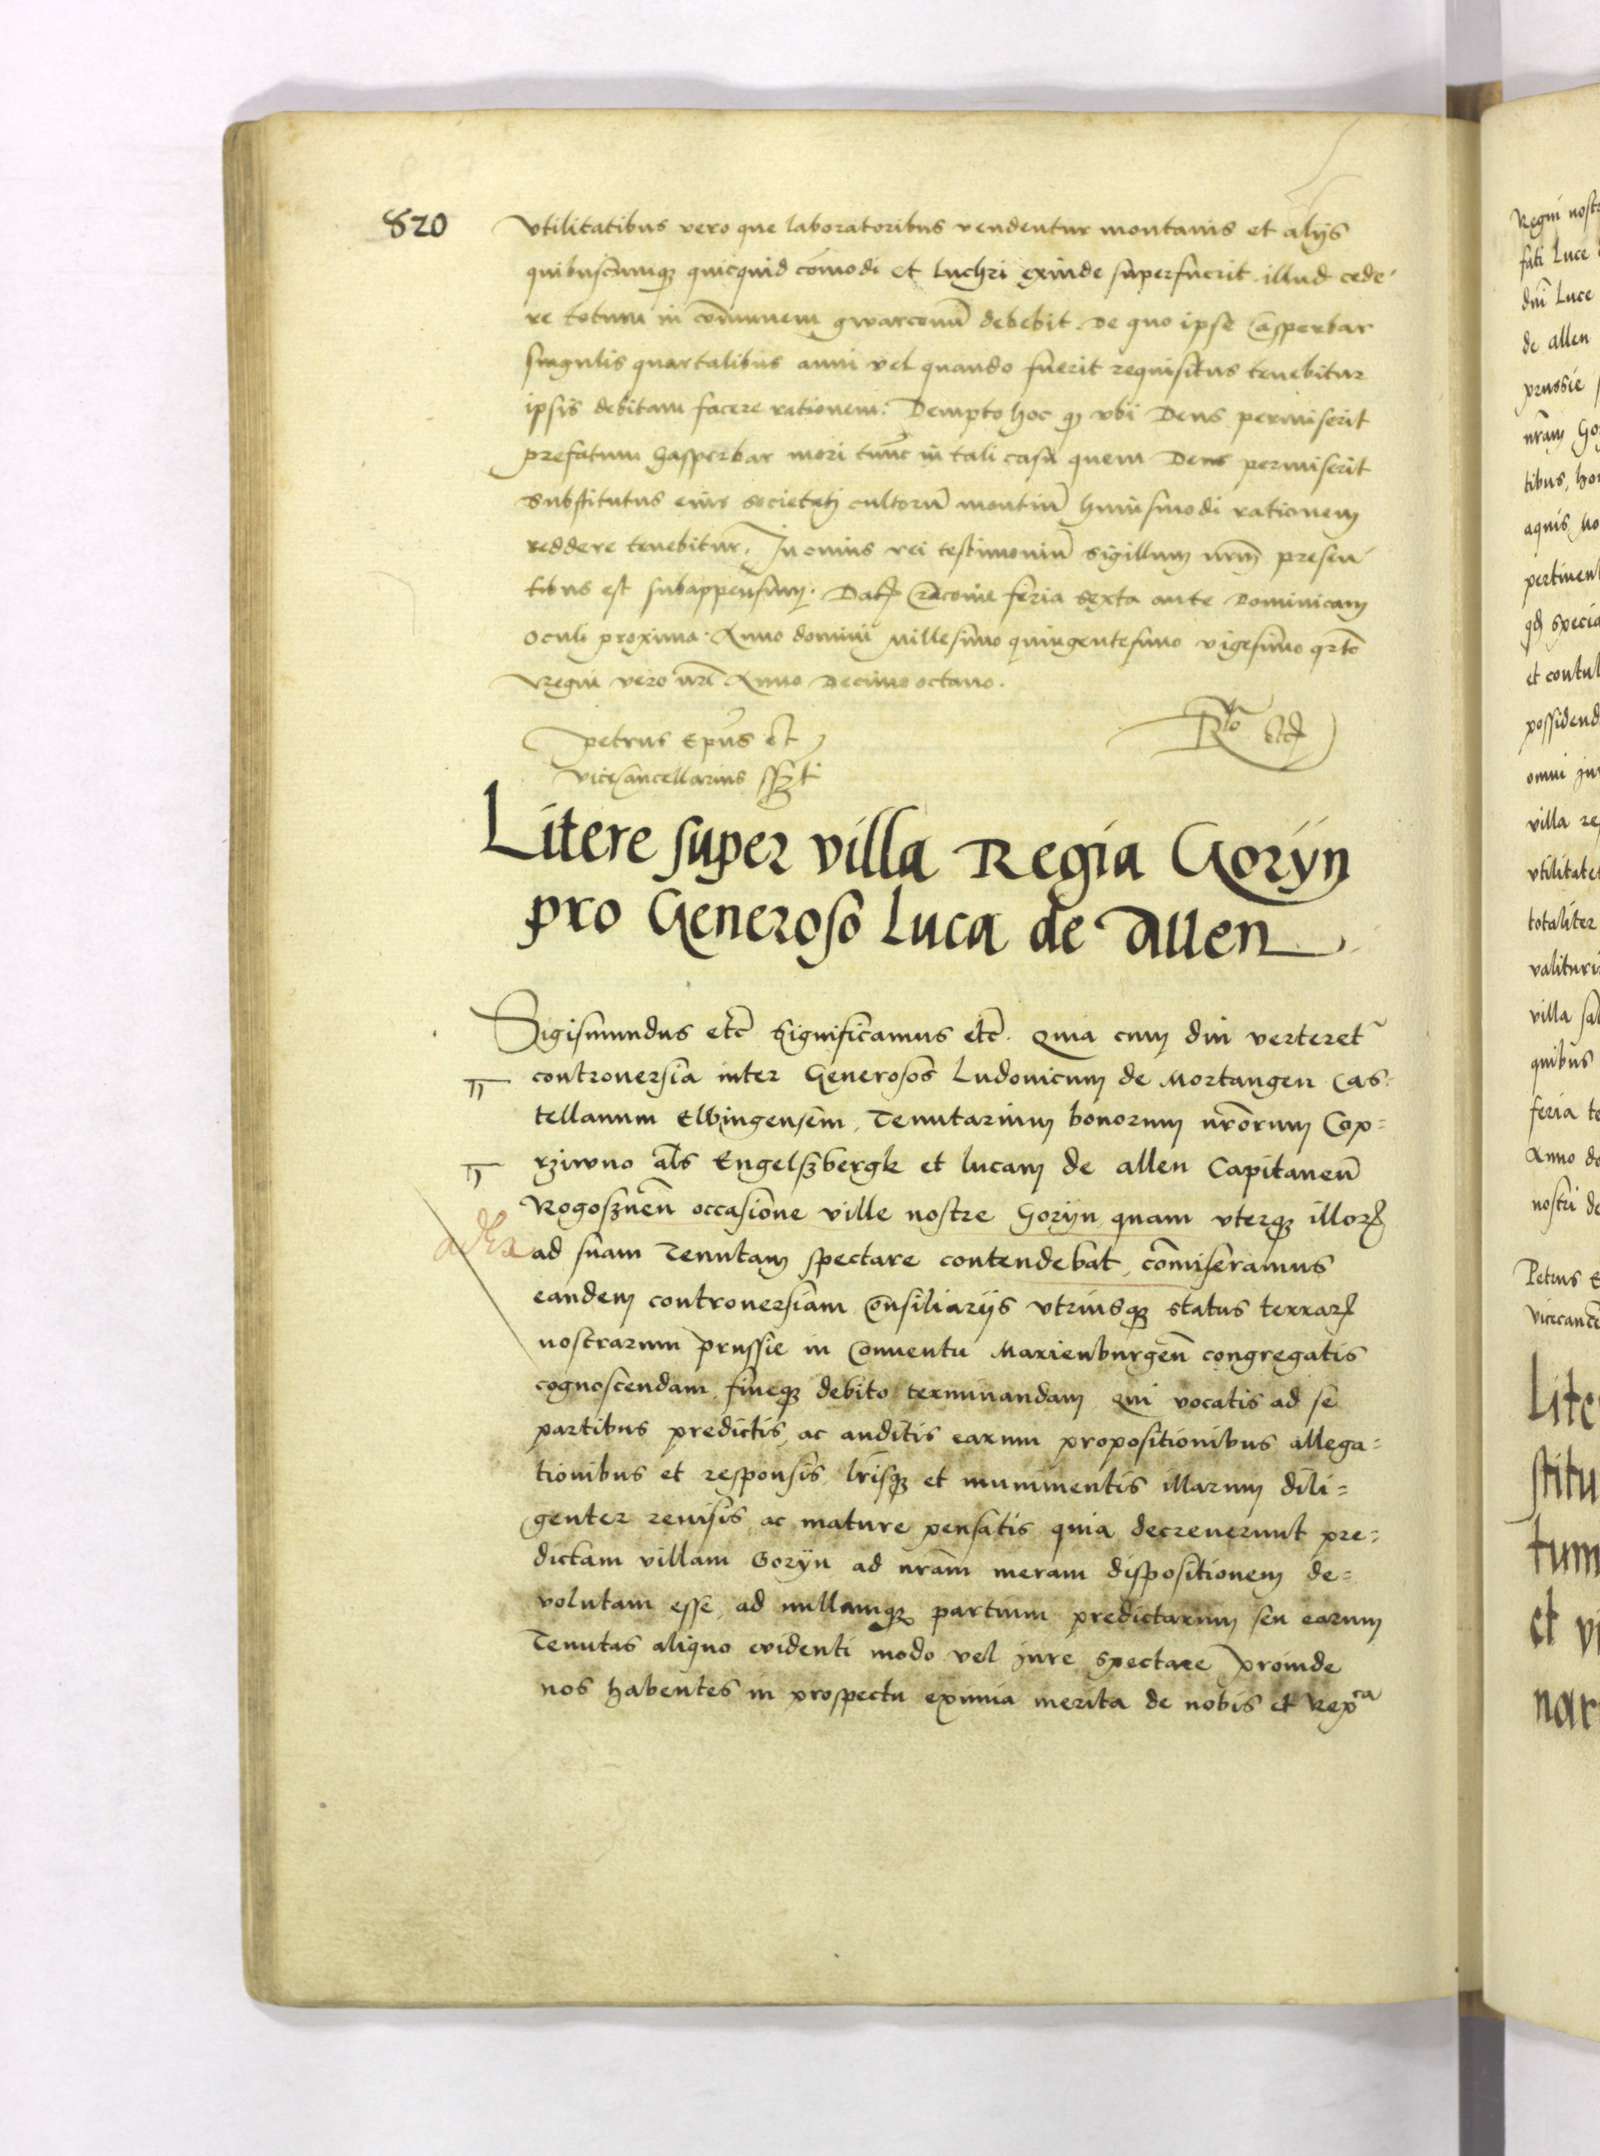 820
Vtilitatibus vero que laboratoribus vendentur montanis et alijs
quibuscumqꝫ quicquid comodi et luchri exinde superfuerit illud cede-
re totum in comunem gwarconū debebit. De quo ipse Casperbar
singulis quartalibus anni vel quando fuerit requisitus tenebitur
ipsis debitam facere rationem. Dempto hoc qꝫ vbi Deus permiserit
prefatum Gasperbar mori tunc in tali casu quem Deus permiserit
Substitutus eius societati cultorū montiū huiusmodi rationem
reddere tenebitur. In cuius rei testimoniū sigillum nrm presen-
tibus est subappensum. Datꝫ Cracouie feria sexta ante Dominicam
Oculi proxima. Anno domini millesimo quingentesimo vigesimo qrto
Regni vero nri Anno Decimo octauo.
Petrus Epus et
Vicecancellarius sszt
Rto etcꝫ
Litere super villa Regia Gorÿn
pro Generoso Luca de Allen
Sigismundus etc Significamus etc. Quia cum diu verteret
controuersia inter Generosos Ludouicum de Mortangen Cas-
tellanum Elbingensem, Tenutarium bonorum nrorum Cop=
rziwno als Engelszbergk et lucam de allen Capitaneū
Rogosznen occasione ville nostre Gorÿn quam vterqꝫ illorꝫ
ad suam Tenutam spectare contendebat, comiseramus
eandem controuersiam Consiliarijs vtriusqꝫ status terrarꝫ
nostrarum Prussie in Conuentu Marienburgen congregatis
cognoscendam fineqꝫ debito terminandam, Qui vocatis ad se
partibus predictis, ac auditis earum propositionibus allega=
tionibus et responsis lrisqꝫ et munimentis illarum dili=
genter reuisis ac mature pensatis quia decreuerunt pre=
dictam villam Gorÿn ad nram meram dispositionem de=
volutam esse, ad nullamqꝫ partium predictarum seu earum
Tenutas aliquo euidenti modo vel jure spectare Proinde
nos habentes in prospectu eximia merita de nobis et Repca